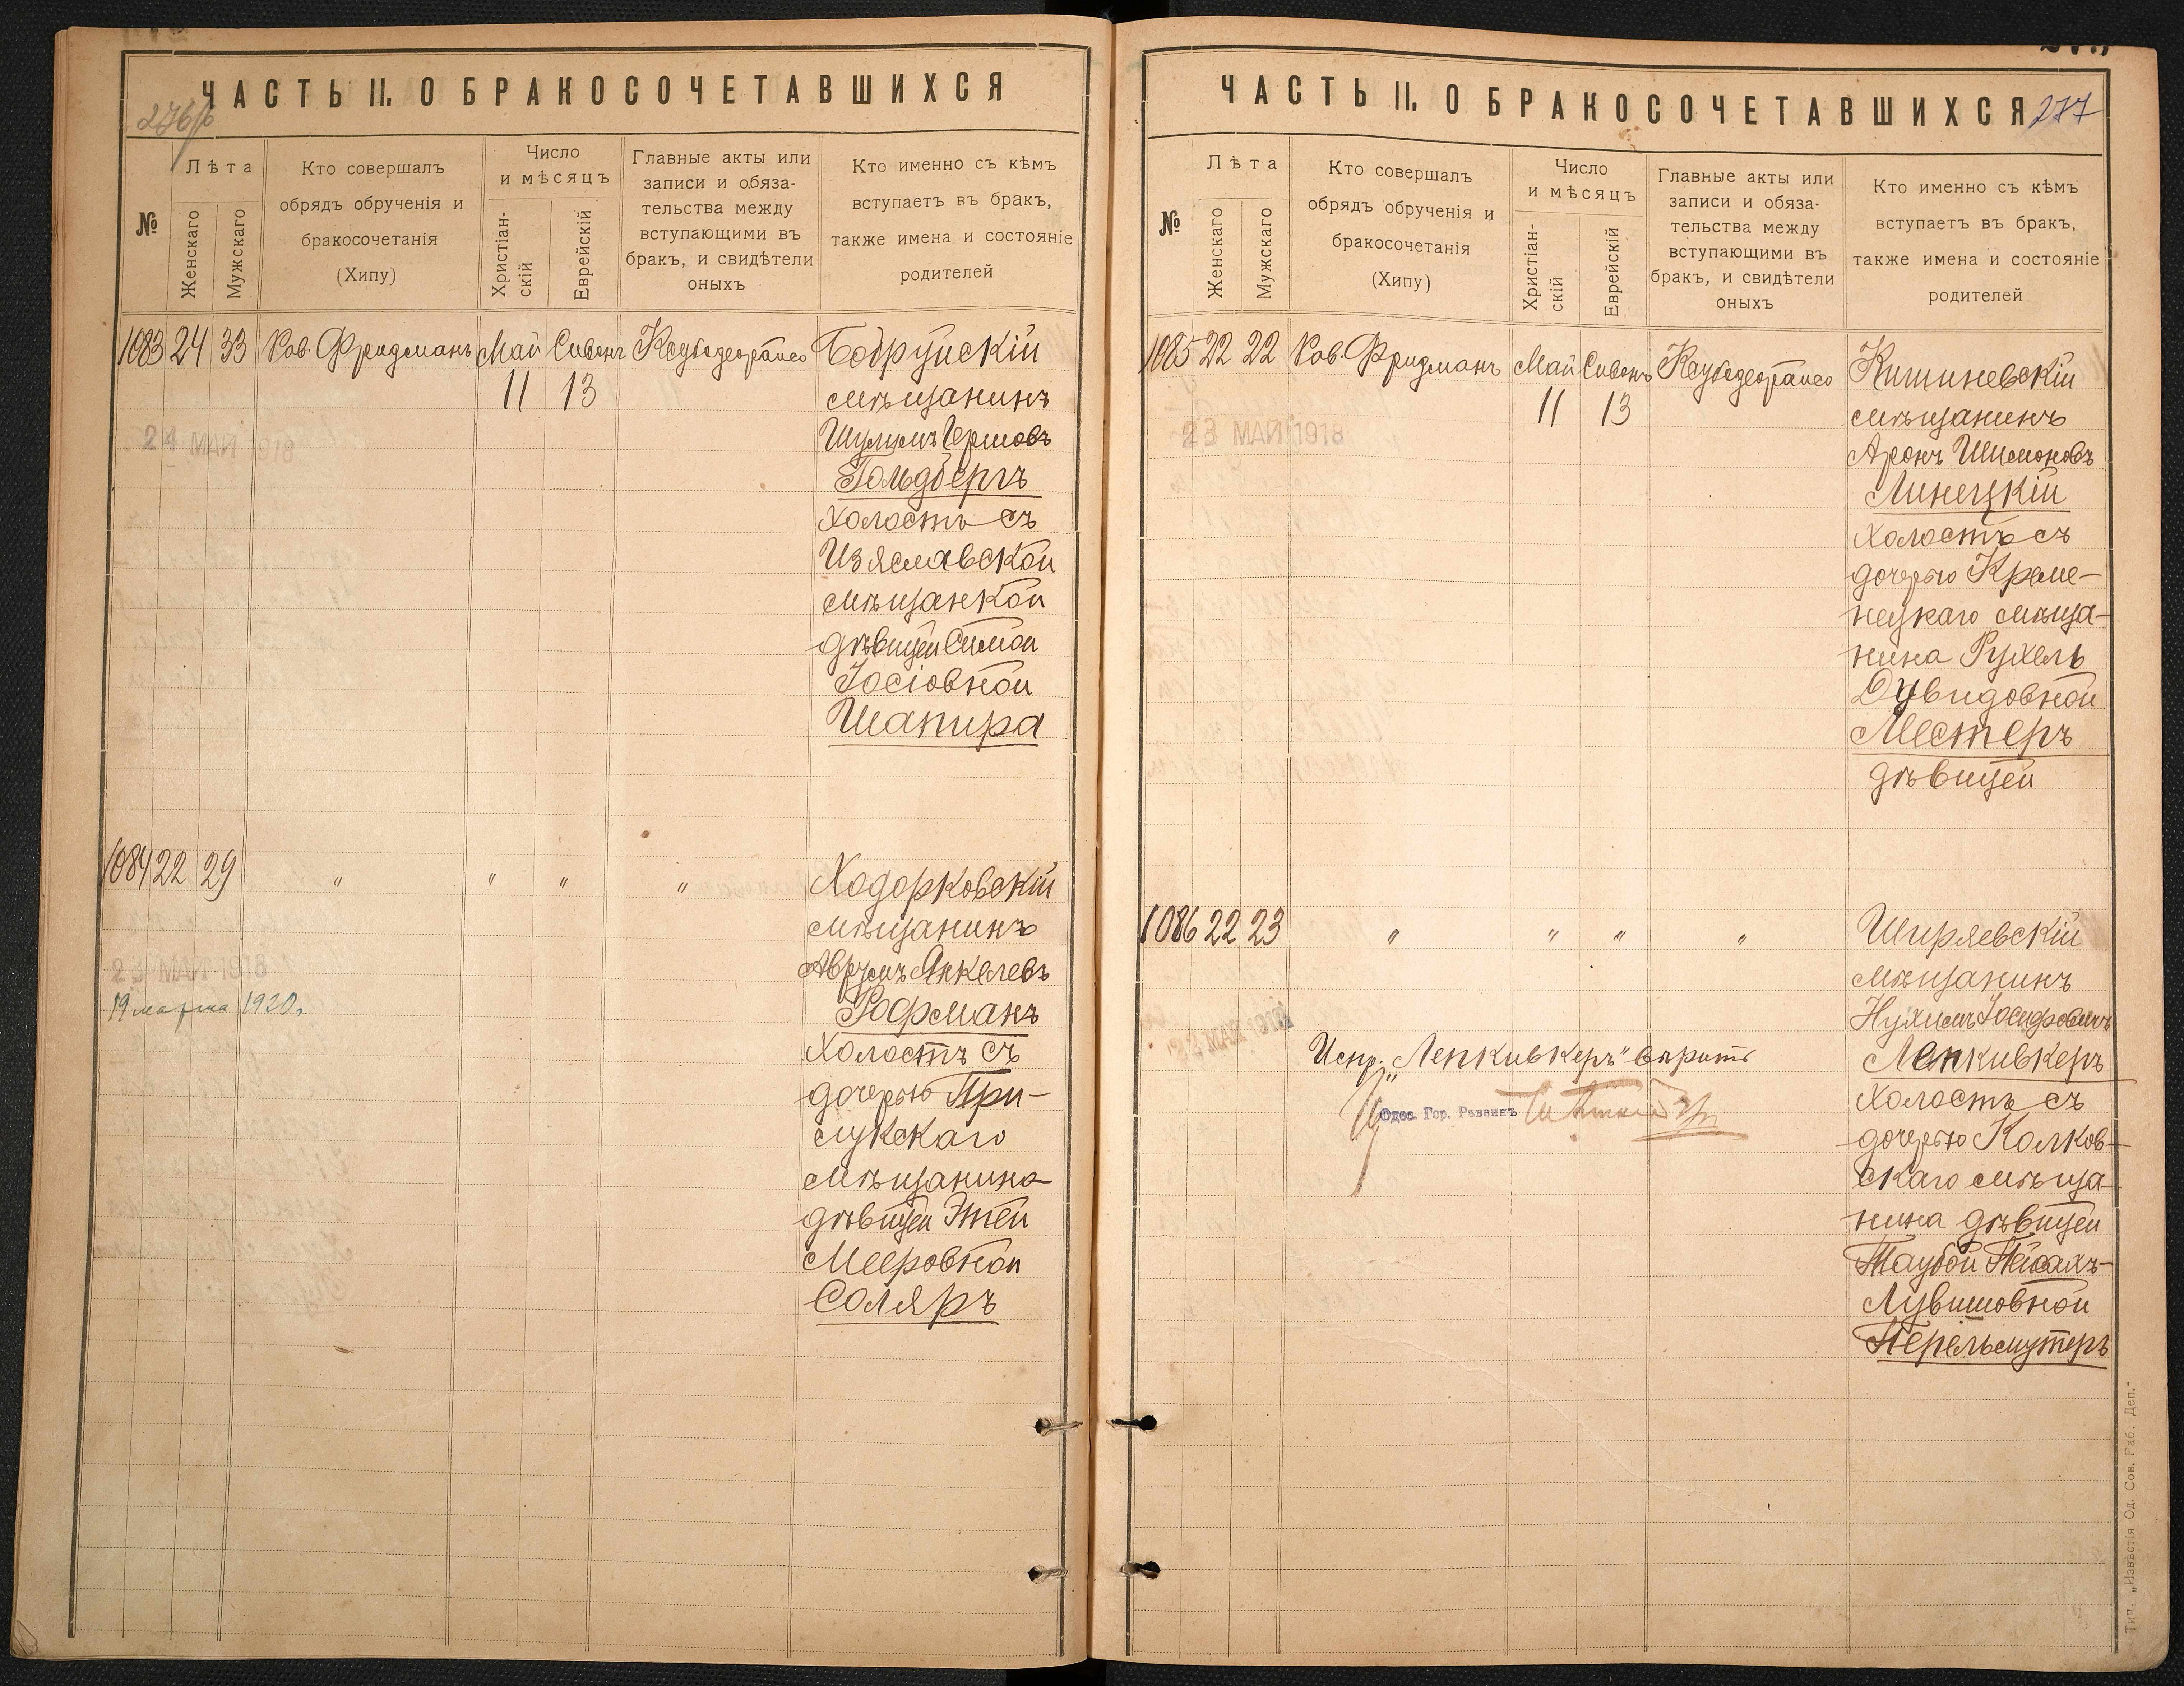 ЧАСТЬ II. О БРАКОСОЧЕТАВШИХСЯ
№
Лѣта
Женскаго
Мужскаго
Кто совершалъ
обрядъ обрученія и
бракосочетанія
(Хипу)
Число
и мѣсяцъ
Христіан-
скій
Еврейскій
Главные акты или
записи и обяза-
тельства между
вступающими въ
бракъ, и свидѣтели
оныхъ
Кто именно съ кѣмъ
вступаетъ въ бракъ,
также имена и состояніе
родителей
1083 24 33 Рав. Фридманъ Май Сивонъ Бобруйскій
11 13 мѣщанинъ
24 МАЙ 1918
Шулимъ Гершовъ
Гольдбергъ
холостъ съ
Изяславской
мѣщанкой
дѣвицей Симой
Іосіовной
Шапира
1084 22 29 " " " " Ходорковскій
мѣщанинъ
23 МАЙ 1918
Аврумъ Янкелевъ
19 марта 1920 г.
Рофманъ
холостъ съ
дочерью При-
лукскаго
мѣщанина
дѣвицей Этей
Мееровной
Соляръ
ЧАСТЬ II. О БРАКОСОЧЕТАВШИХСЯ
277
№
Лѣта
Женскаго
Мужскаго
Кто совершалъ
обрядъ обрученія и
бракосочетанія
(Хипу)
Число
и мѣсяцъ
Христіан-
скій
Еврейскій
Главные акты или
записи и обяза-
тельства между
вступающими въ
бракъ, и свидѣтели
оныхъ
Кто именно съ кѣмъ
вступаетъ въ бракъ,
также имена и состояніе
родителей
1085 22 22 Рав. Фридманъ Май Сивонъ Кишиневскій
11 13 мѣщанинъ
23 МАЙ 1918
Аронъ Шимоновъ
Линецкій
холостъ съ
дочерью Креме-
нецкаго мѣща-
нина Рухель
Дувидовной
Местеръ
дѣвицей
1086 22 23 " " " " Ширяевскій
мѣщанинъ
Нухимъ Іосифовичъ
МАЙ 1918
Испр. „Лепкивкеръ" вѣрить
Лепкивкеръ
холостъ съ
Одес. Гор. Раввинъ
дочерью Колков-
скаго мѣща-
нина дѣвицей
Таубой Пейсахъ-
Лувишовной
Перельмутеръ
Тип. „Извѣстія Од. Сов. Раб. Деп."